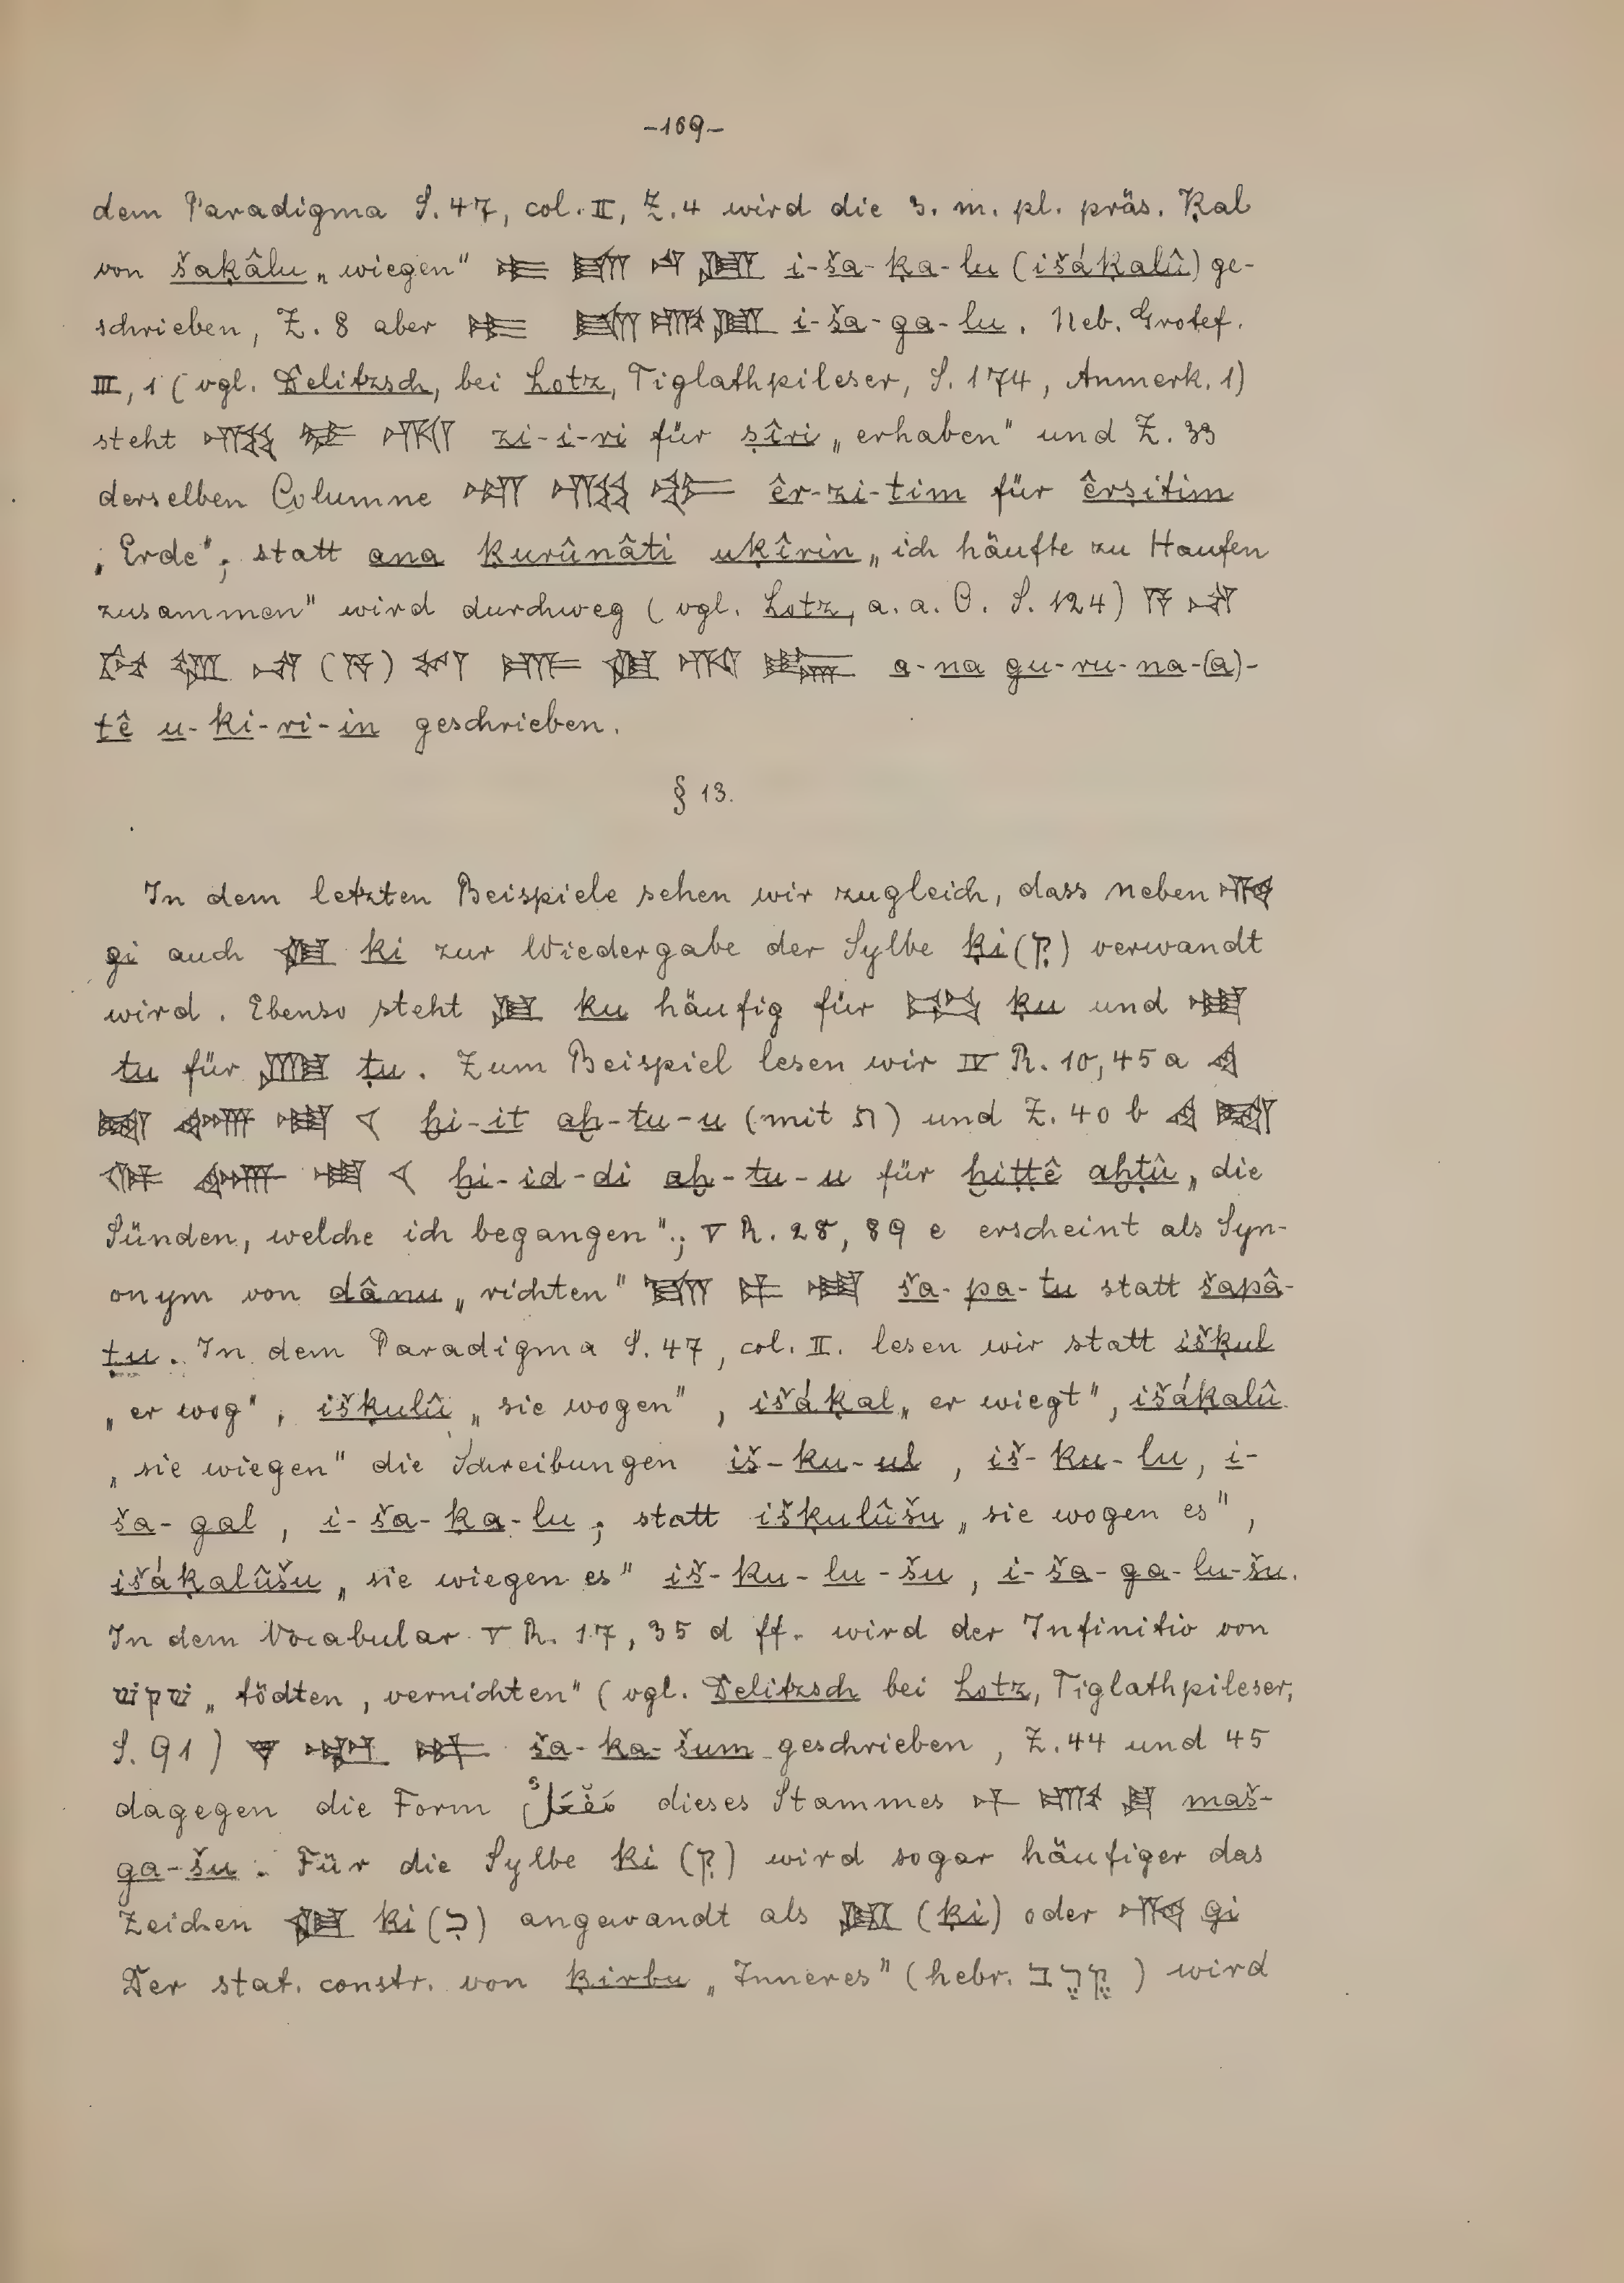 -169-
dem Paradigma S. 47, col. II, Z. 4 wird die 3. m. pl. präs. Ḳal
von šaḳâlu „wiegen" i-ša-ḳa-lu (išáḳalû) ge-
schrieben, Z. 8 aber i-ša-ga-lu. Neb. Grotef.
III, 1 (vgl. Delitzsch, bei Lotz, Tiglathpileser, S. 174, Anmerk. 1)
steht zi-i-ri für ṣîri „erhaben" und Z. 33
derselben Columne êr-zi-tim für êrṣitim
„Erde"; statt ana ḳurûnâti uḳîrin „ich häufte zu Haufen
zusammen" wird durchweg (vgl. Lotz, a. a. O. S. 124)
( ) a-na gu-ru-na-(a)-
tê u-ki-ri-in geschrieben.
§ 13.
In dem letzten Beispiele sehen wir zugleich, dass neben
gi auch ki zur Wiedergabe der Sylbe ḳi (קִ) verwandt
wird. Ebenso steht ku häufig für ḳu und
tu für ṭu. Zum Beispiel lesen wir IV R. 10, 45 a
ḫi-it aḫ-tu-u (mit ת) und Z. 40 b
ḫi-id-di aḫ-tu-u für ḫiṭṭê aḫṭû „die
Sünden, welche ich begangen"; V R. 28, 89 e erscheint als Syn-
onym von dânu „richten" ša-pa-tu statt šapâ-
ṭu. In dem Paradigma S. 47, col. II. lesen wir statt išḳul
„er wog", išḳulû „sie wogen", išáḳal „er wiegt", išáḳalû
„sie wiegen" die Schreibungen iš-ku-ul, iš-ku-lu, i-
ša-gal, i-ša-ḳa-lu; statt išḳulûšu „sie wogen es",
išáḳalûšu „sie wiegen es" iš-ku-lu-šu, i-ša-ga-lu-šu.
In dem Vocabular V R. 17, 35 d ff. wird der Infinitiv von
שקש „tödten, vernichten" (vgl. Delitzsch bei Lotz, Tiglathpileser,
S. 91) ša-ka-šum geschrieben, Z. 44 und 45
dagegen die Form dieses Stammes maš-
ga-šu. Für die Sylbe ḳi (קִ) wird sogar häufiger das
Zeichen ki (כִ) angewandt als (ḳi) oder gi
Der stat. constr. von ḳirbu „Inneres" (hebr. קֶרֶב) wird